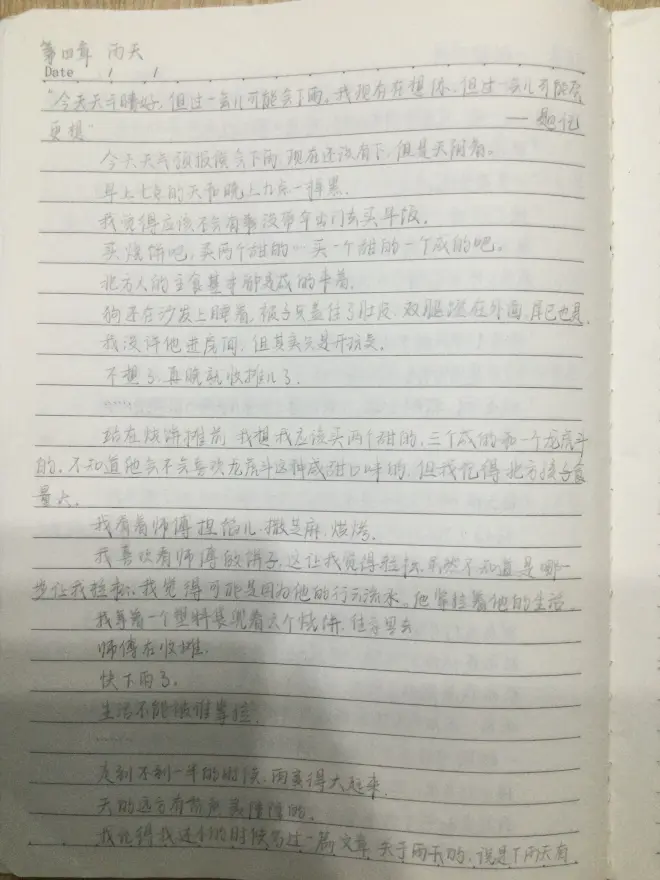 第四章 雨天
Date / /
"今天天气晴好,但过一会儿可能会下雨,我现在在想你,但过一会儿可能会
更想" ——题记
今天天气预报说会下雨,现在还没有下,但是天阴着。
早上七点的天和晚上九点一样黑。
我觉得应该不会有事没带伞出门去买早饭。
买烧饼吧,买两个甜的…买一个甜的一个咸的吧。
北方人的主食基本都是咸的来着。
狗还在沙发上睡着,被子只盖住了肚皮,双腿在外面,尾巴也是。
我没许他进房间,但其实只是开玩笑。
不想了,再晚就收摊儿了。
……
站在烧饼摊前,我想我应该买两个甜的,三个咸的和一个龙虎斗
的,不知道他会不会喜欢龙虎斗这种咸甜口味的,但我记得北方孩子食
量大。
我看着师傅捏馅儿,撒芝麻,烘烤。
我喜欢看师傅做饼子,这让我觉得轻松,虽然不知道是哪一
步让我轻松,我觉得可能是因为他的行云流水。他掌控着他的生活。
我拿着一个塑料袋兜着六个烧饼,往家里去
师傅在收摊。
快下雨了。
生活不能被谁掌控。
……
走到不到一半的时候,雨真得大起来。
天的远方有些灰蒙蒙的。
我记得我还小的时候写过一篇文章,关于雨天的,说是下雨天有